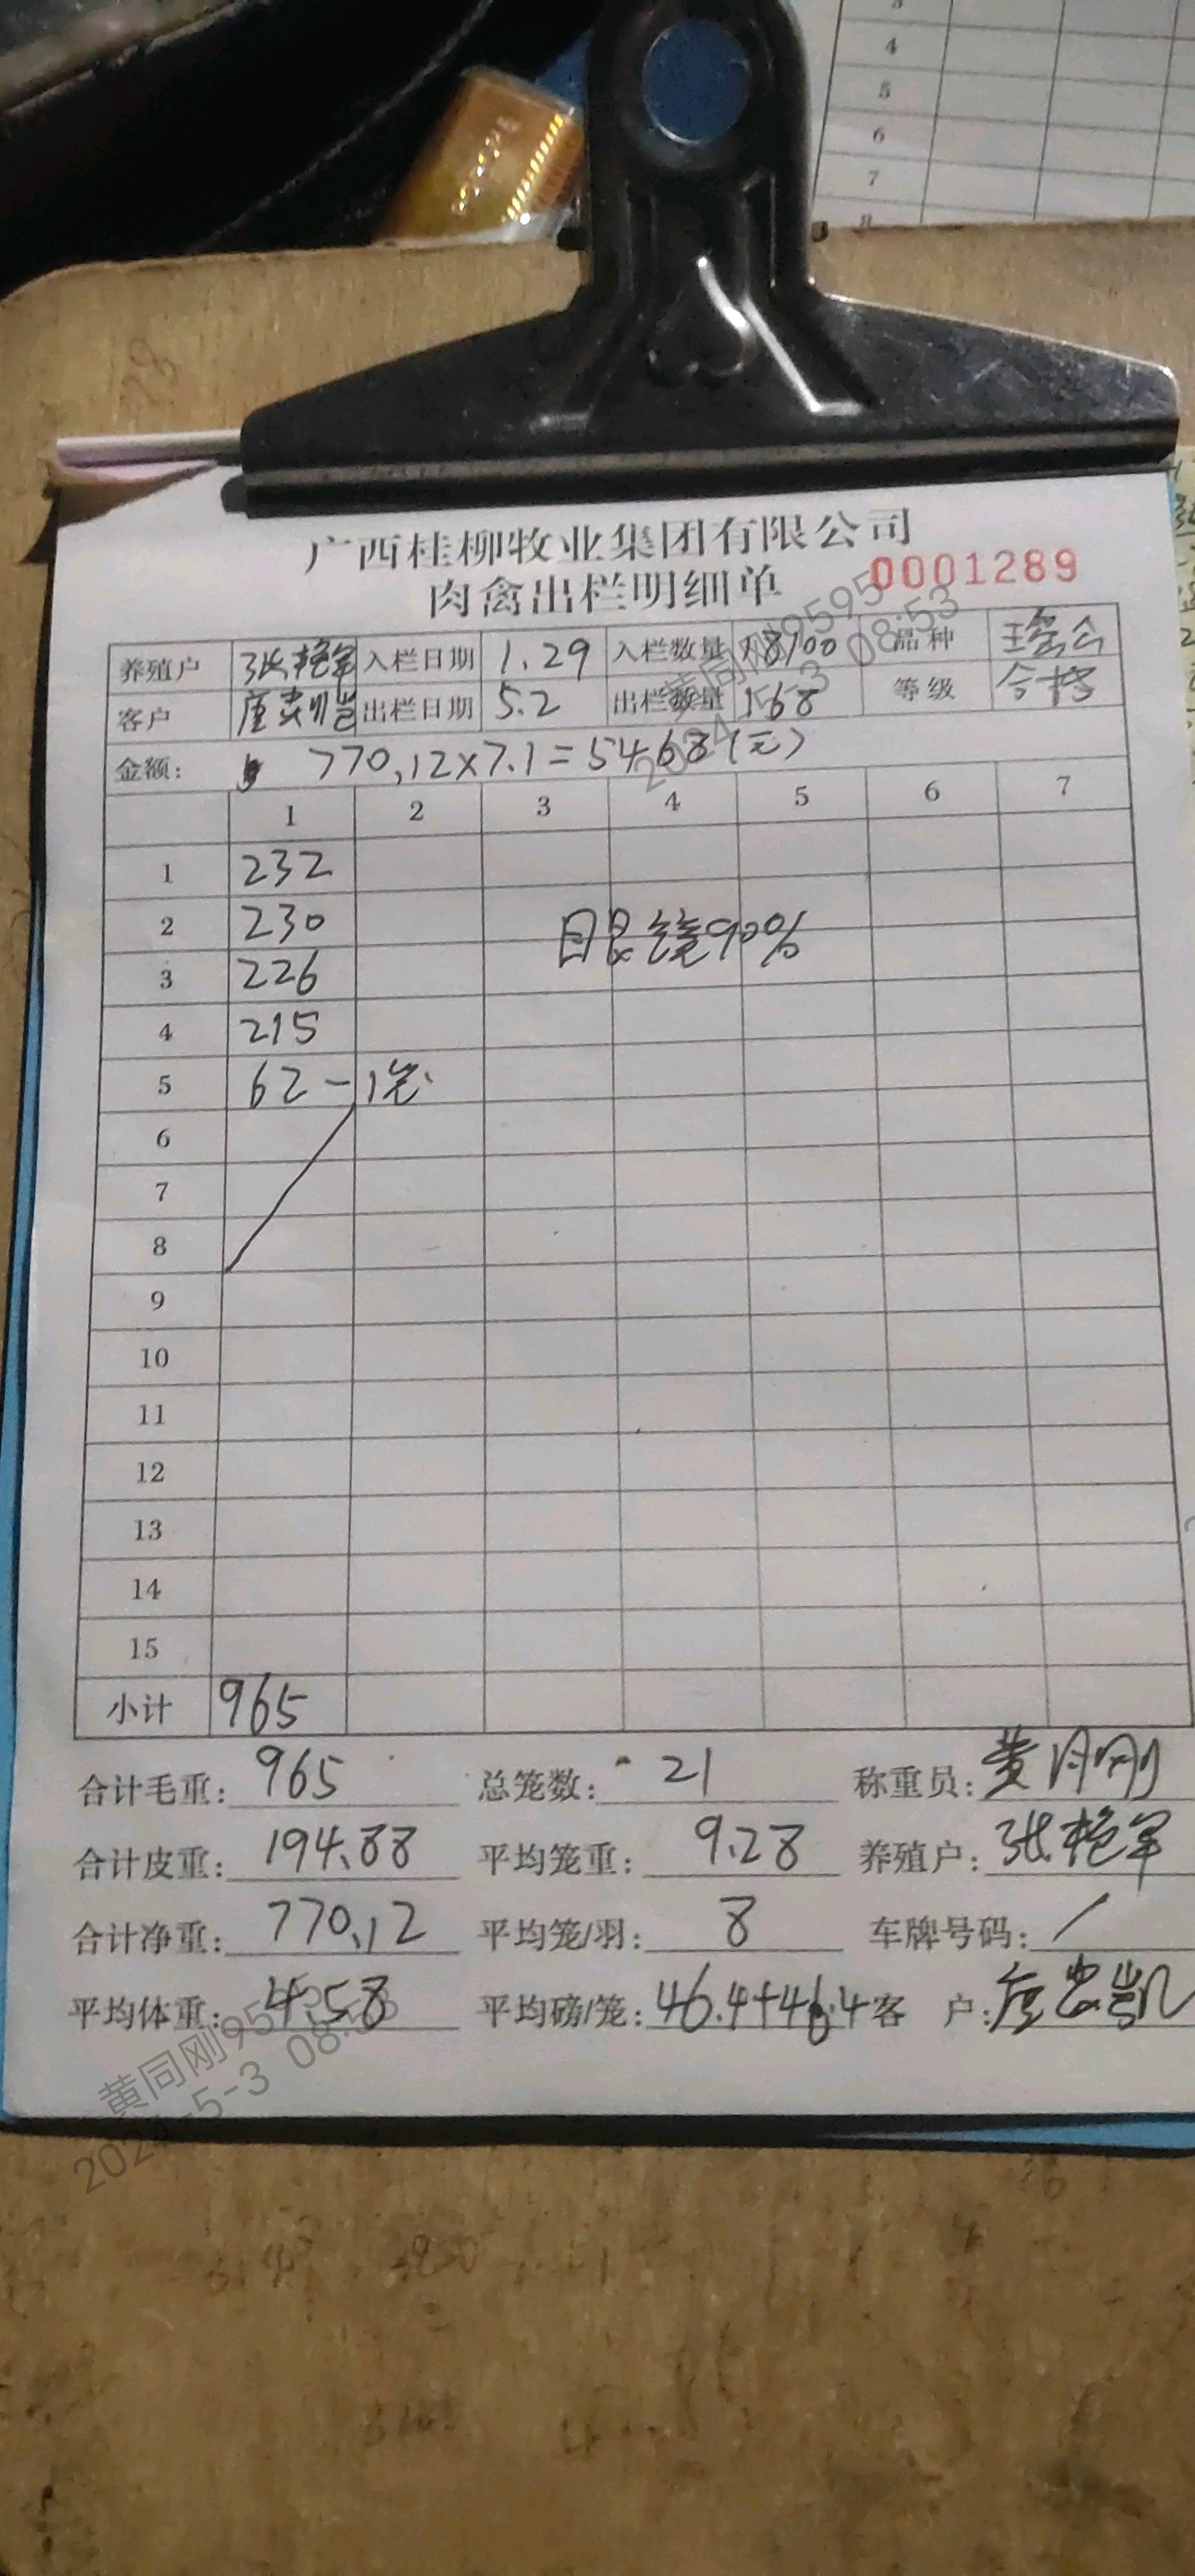 3
4
5
6
7
8
广西桂柳牧业集团有限公司
肉禽出栏明细单 0001289
养殖户 张艳军 入栏日期 1.29 入栏数量 18100 品种 瑶公
客户 唐忠凯 出栏日期 5.2 出栏数量 168 等级 合格
金额: 770.12×7.1=5468(元)
1 2 3 4 5 6 7
1 232
2 230
3 226
4 215
5 62-1笼
90%
6
7
8
9
10
11
12
13
14
15
小计 965
合计毛重: 965 总笼数: 21 称重员: 黄同刚
合计皮重: 194.88 平均笼重: 9.28 养殖户: 张艳军
合计净重: 770.12 平均笼/羽: 8 车牌号码: /
平均体重: 4.58 平均磅/笼: 46.4+46.4 客 户: 唐忠凯
黄同刚9595
2024-5-3 08:53
黄同刚9595
2024-5-3 08:53